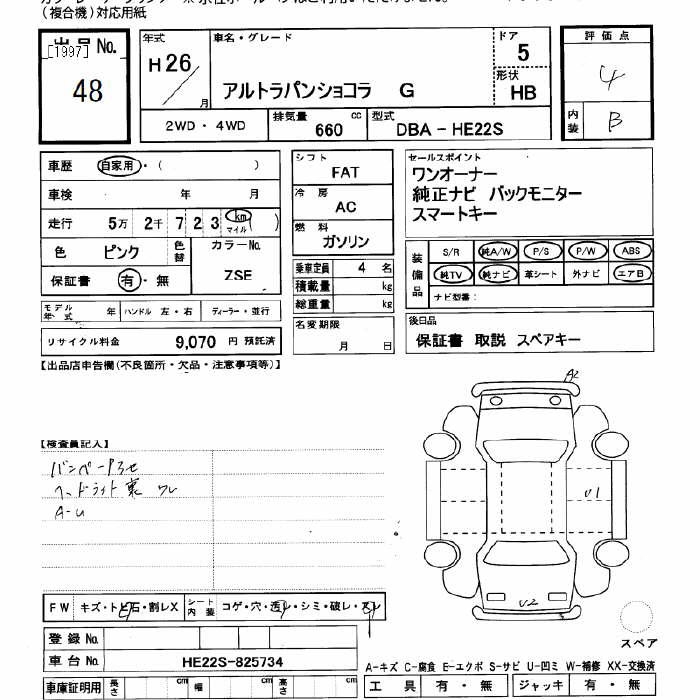 (複合機)対応用紙
出品 No.
[1997]
48
年式
H26/
月
車名・グレード
アルトラパンショコラ G
ドア
5
形状
HB
評価点
4
内装
B
2WD・4WD
排気量 660 cc
型式 DBA - HE22S
車歴 自家用・( )
車検 年 月
走行 5万 2千 7 2 3 km マイル ( )
色 ピンク 色替
カラーNo.
ZSE
保証書 有・無
モデル年式 年 ハンドル 左・右 ディーラー・並行
リサイクル料金 9,070 円 預託済
シフト
FAT
冷房
AC
燃料
ガソリン
乗車定員 4 名
積載量 kg
総重量 kg
名変期限
月 日
セールスポイント
ワンオーナー
純正ナビ バックモニター
スマートキー
装備品
S/R 純A/W P/S P/W ABS
純TV 純ナビ 革シート 外ナビ エアB
ナビ型番:
後日品
保証書 取説 スペアキー
【出品店申告欄(不良箇所・欠品・注意事項等)】
【検査員記入】
バンパーキズ
ヘッドライト裏 ワレ
A-U
A2
U1
U2
FW キズ・トビ石・割レX シート内装 コゲ・穴・汚レ・シミ・破レ・スレ
登録 No.
車台 No. HE22S-825734
車庫証明用 長さ cm 幅 cm 高さ cm
スペア
A-キズ C-腐食 E-エクボ S-サビ U-凹ミ W-補修 XX-交換済
工具 有・無 ジャッキ 有・無